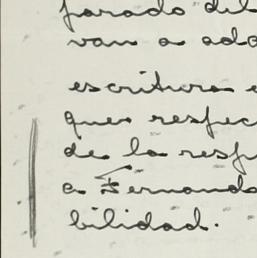 parado del
van a ado
escritura e
que respec
de la resp
a Fernando
bilidad.